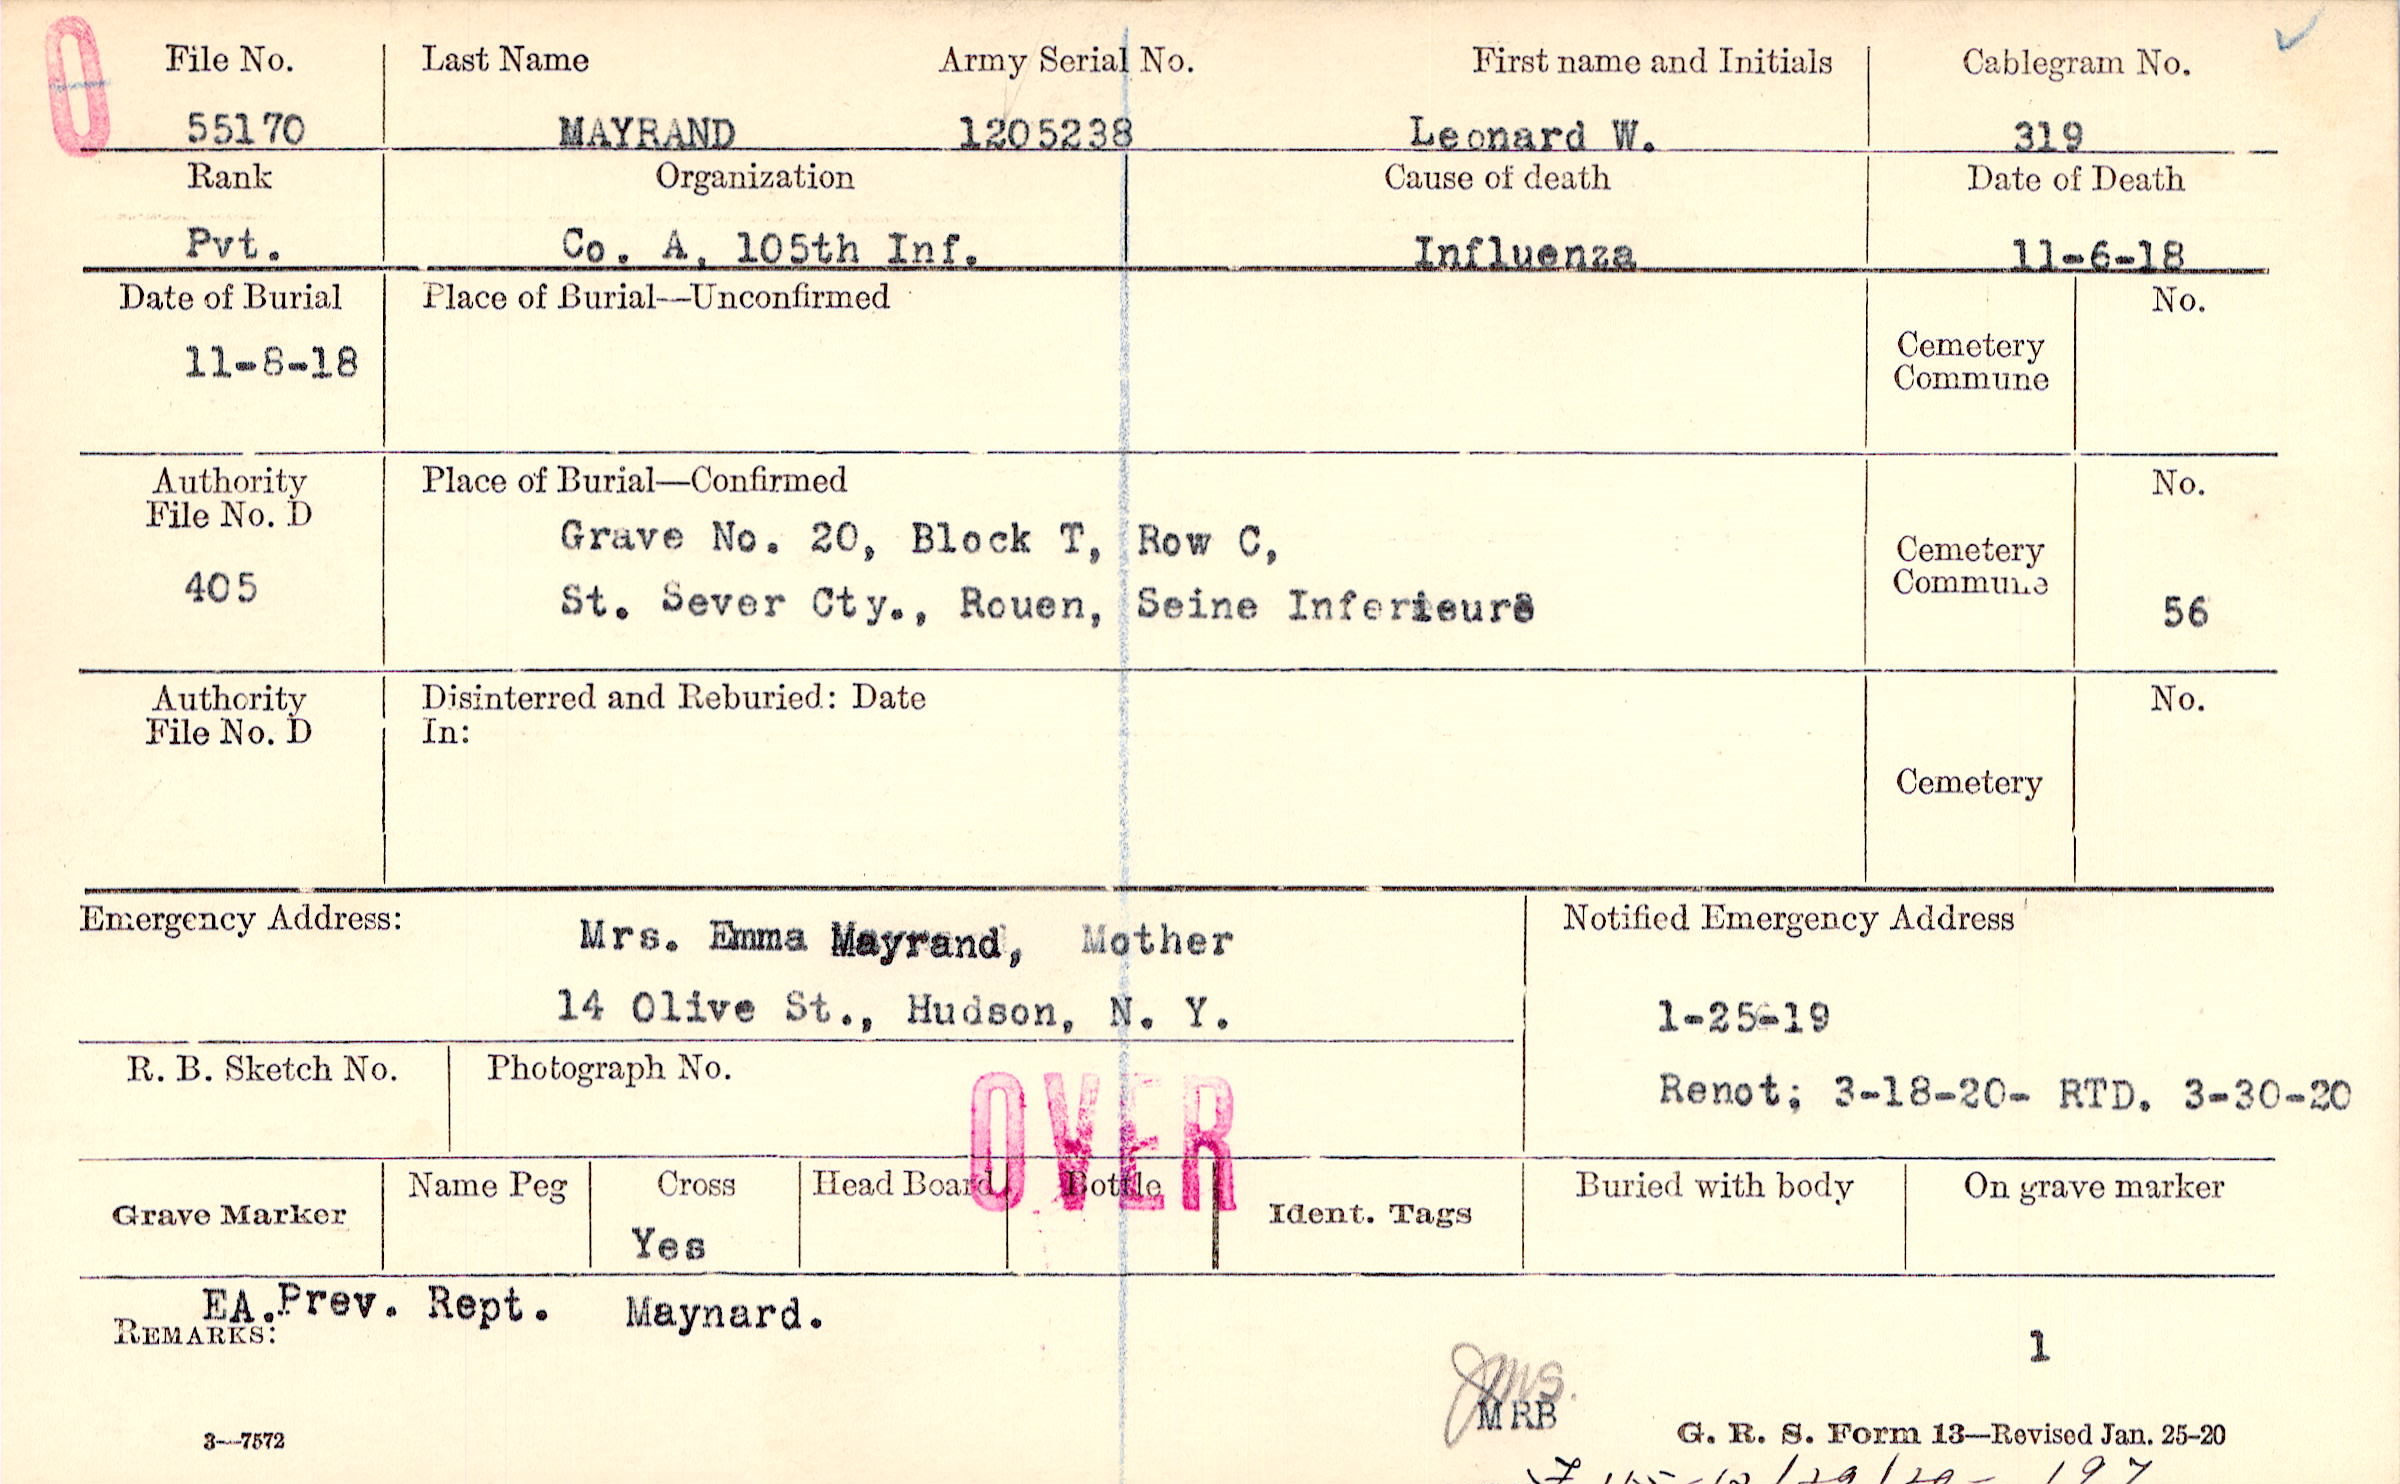 File No. Last Name Army Serial No. First name and Initials Cablegram No.
55170 MAYRAND 1205238 Leonard W. 319
Rank Organization Cause of death Date of Death
Pvt. Co. A, 105th Inf. Influenza 11-6-18
Date of Burial Place of Burial—Unconfirmed No.
11-8-18
Cemetery
Commune
Authority Place of Burial—Confirmed No.
File No. D
Grave No. 20, Block T, Row C,
Cemetery
Commune
405
St. Sever Cty., Rouen, Seine Inferieure
56
Authority Disinterred and Reburied: Date No.
File No. D In:
Cemetery
Emergency Address: Mrs. Emma Mayrand, Mother
14 Olive St., Hudson, N. Y.
Notified Emergency Address
1-25-19
Renot; 3-18-20- RTD. 3-30-20
R. B. Sketch No. Photograph No.
OVER
Grave Marker Name Peg Cross Head Board Bottle Ident. Tags Buried with body On grave marker
Yes
EA. Prev. Rept. Maynard.
REMARKS:
1
MRB
3—7572
G. R. S. Form 13—Revised Jan. 25-20